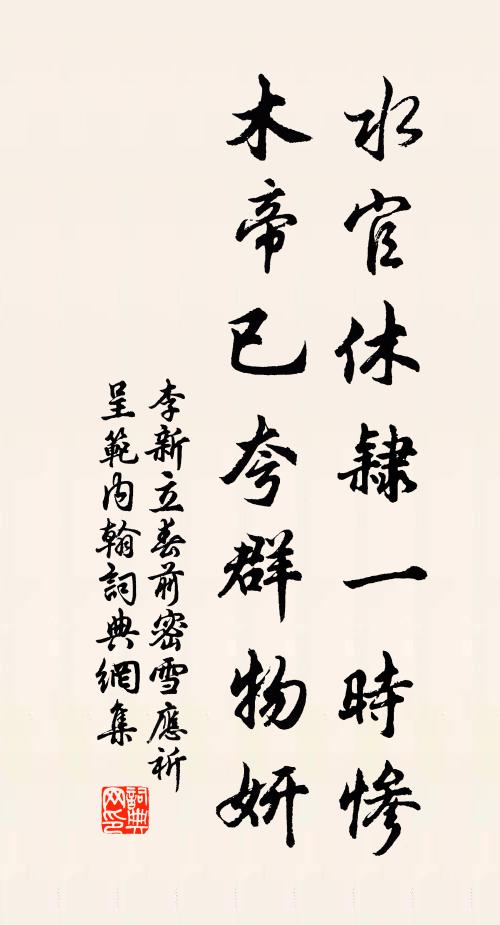 水官休隸一時慘
木帝已夸群物妍
李新立春前密雪應祈
呈範內翰詞典網集
詞典网印